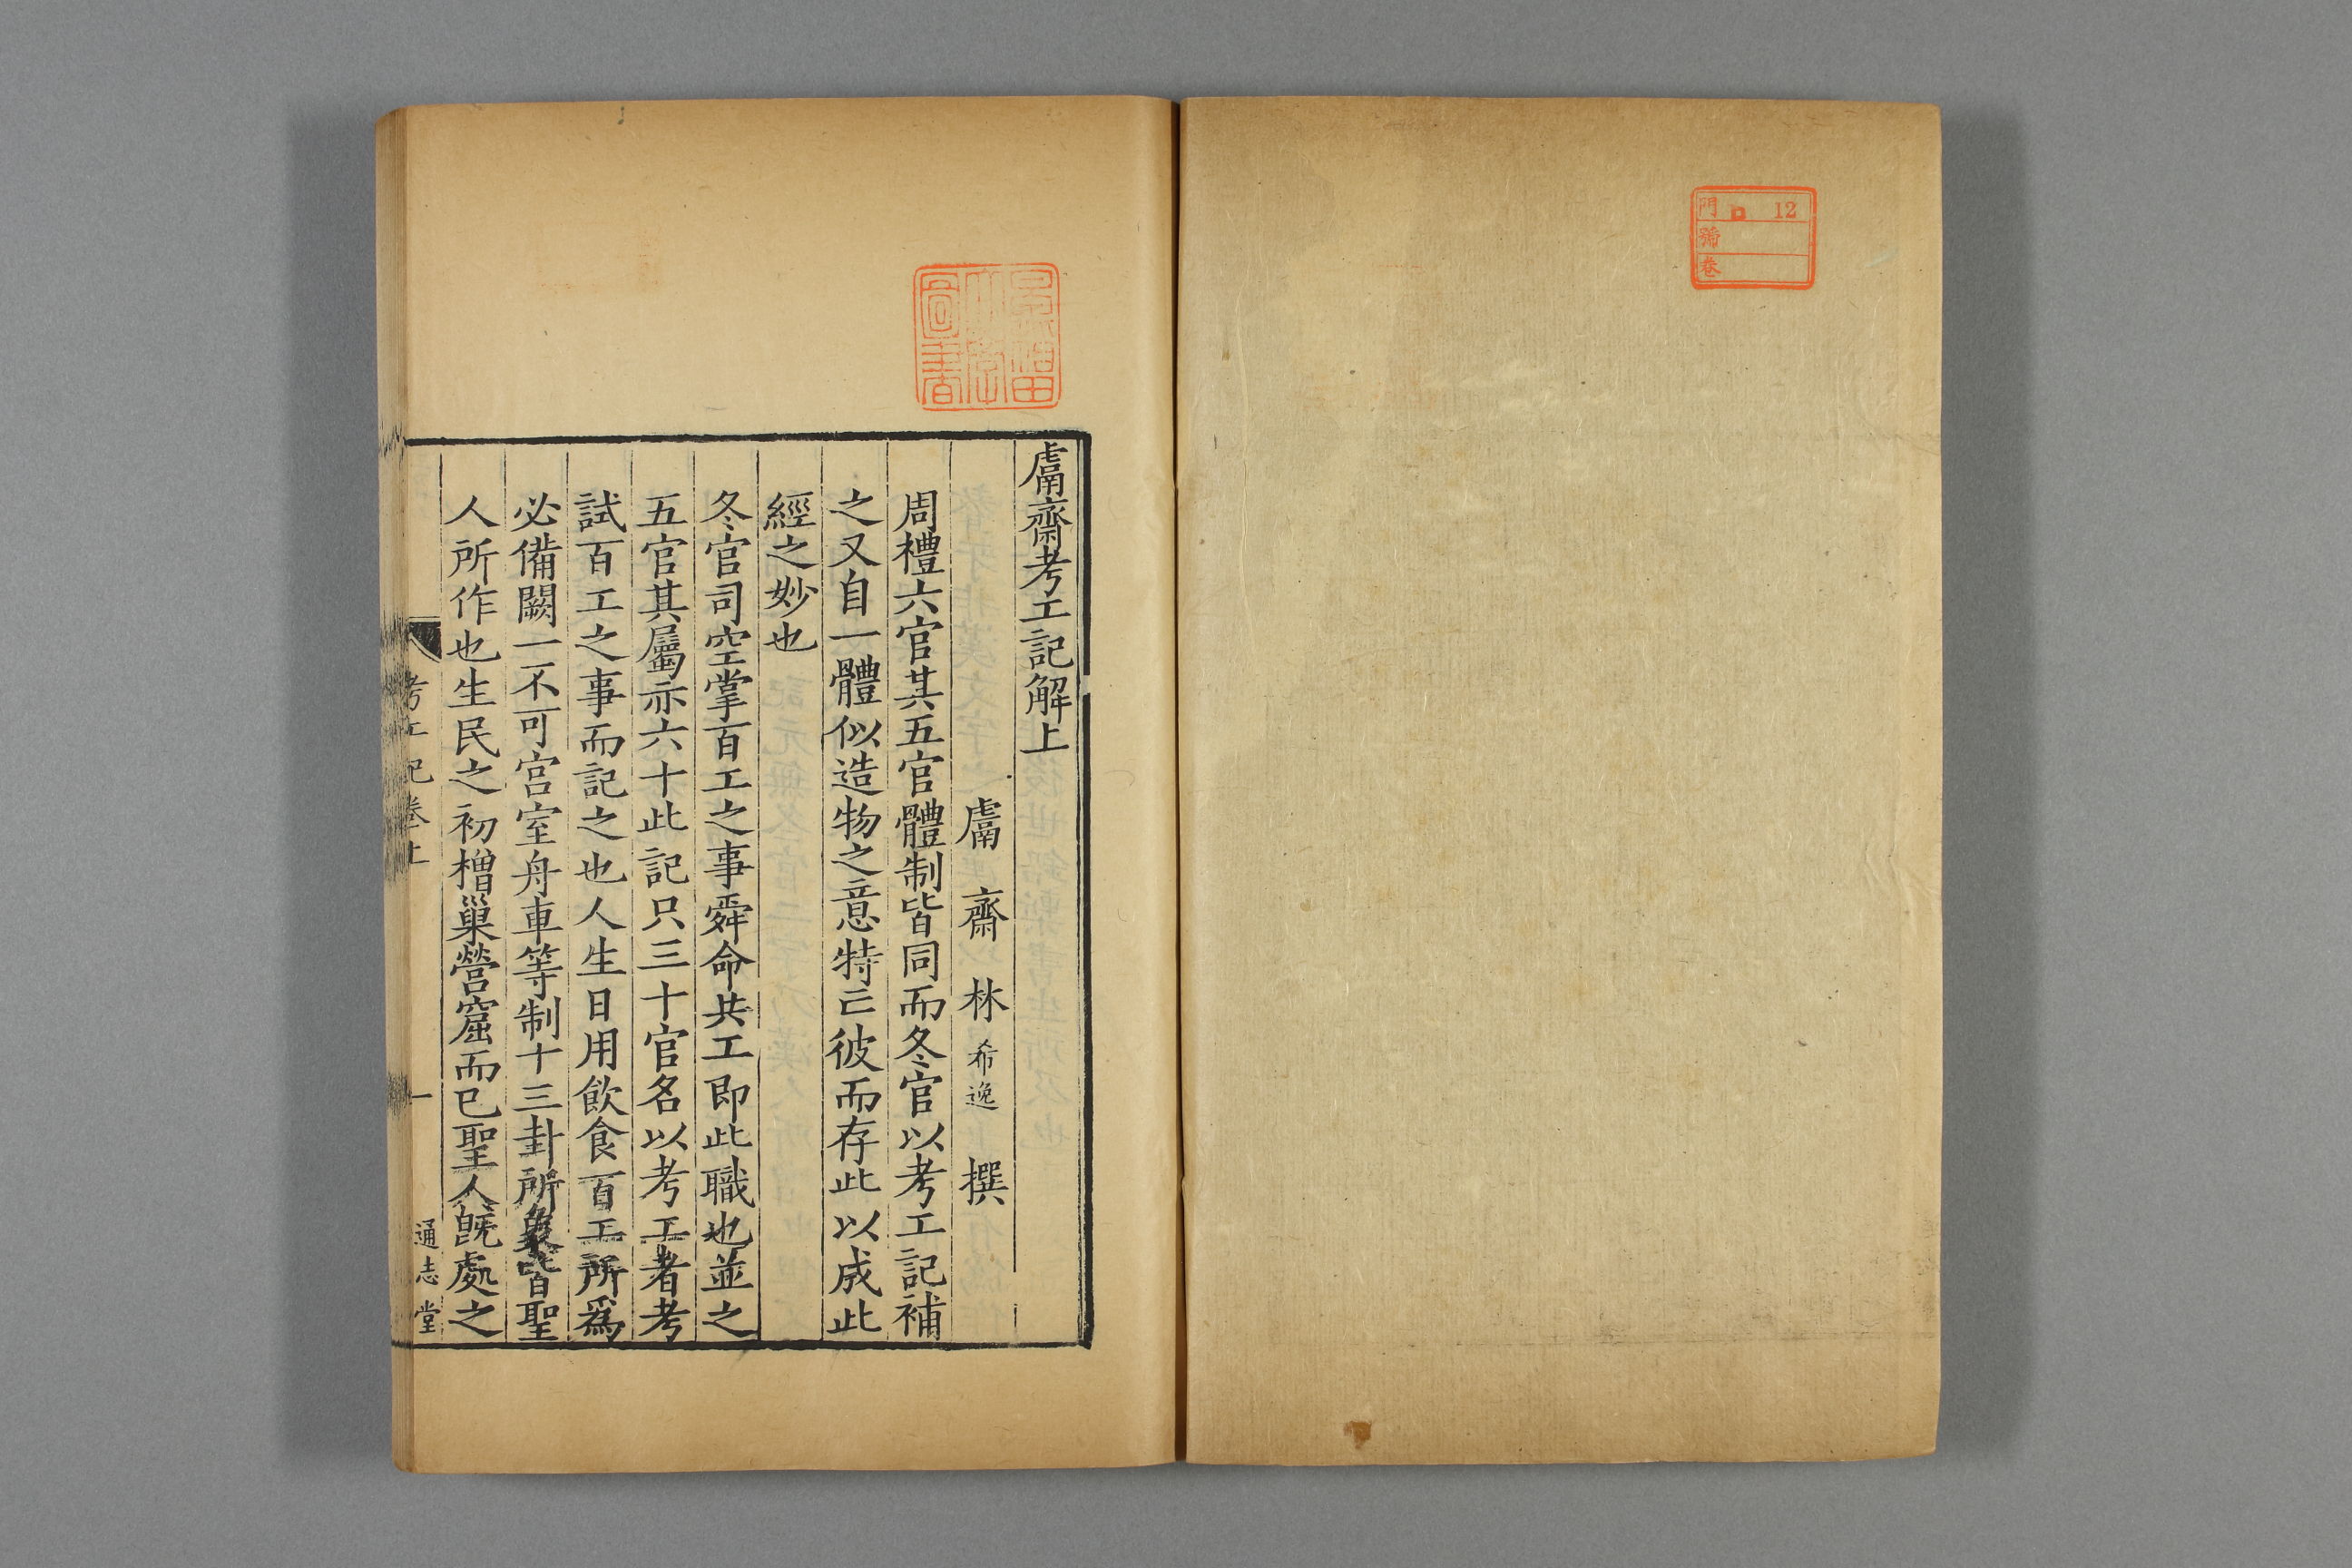 門 ロ 12
號
卷
圖書
鬳齋考工記解上
鬳齋林希逸撰
周禮六官其五官體制皆同而冬官以考工記補
之又自一體似造物之意特亡彼而存此以成此
經之妙也
冬官司空掌百工之事舜命共工即此職也並之
五官其屬亦六十此記只三十官名以考工者考
試百工之事而記之也人生日用飲食百工所爲
必備闕一不可宮室舟車等制十三卦所象皆聖
人所作也生民之初橧巢營窟而已聖人旣處之
考工記卷上
一
通志堂